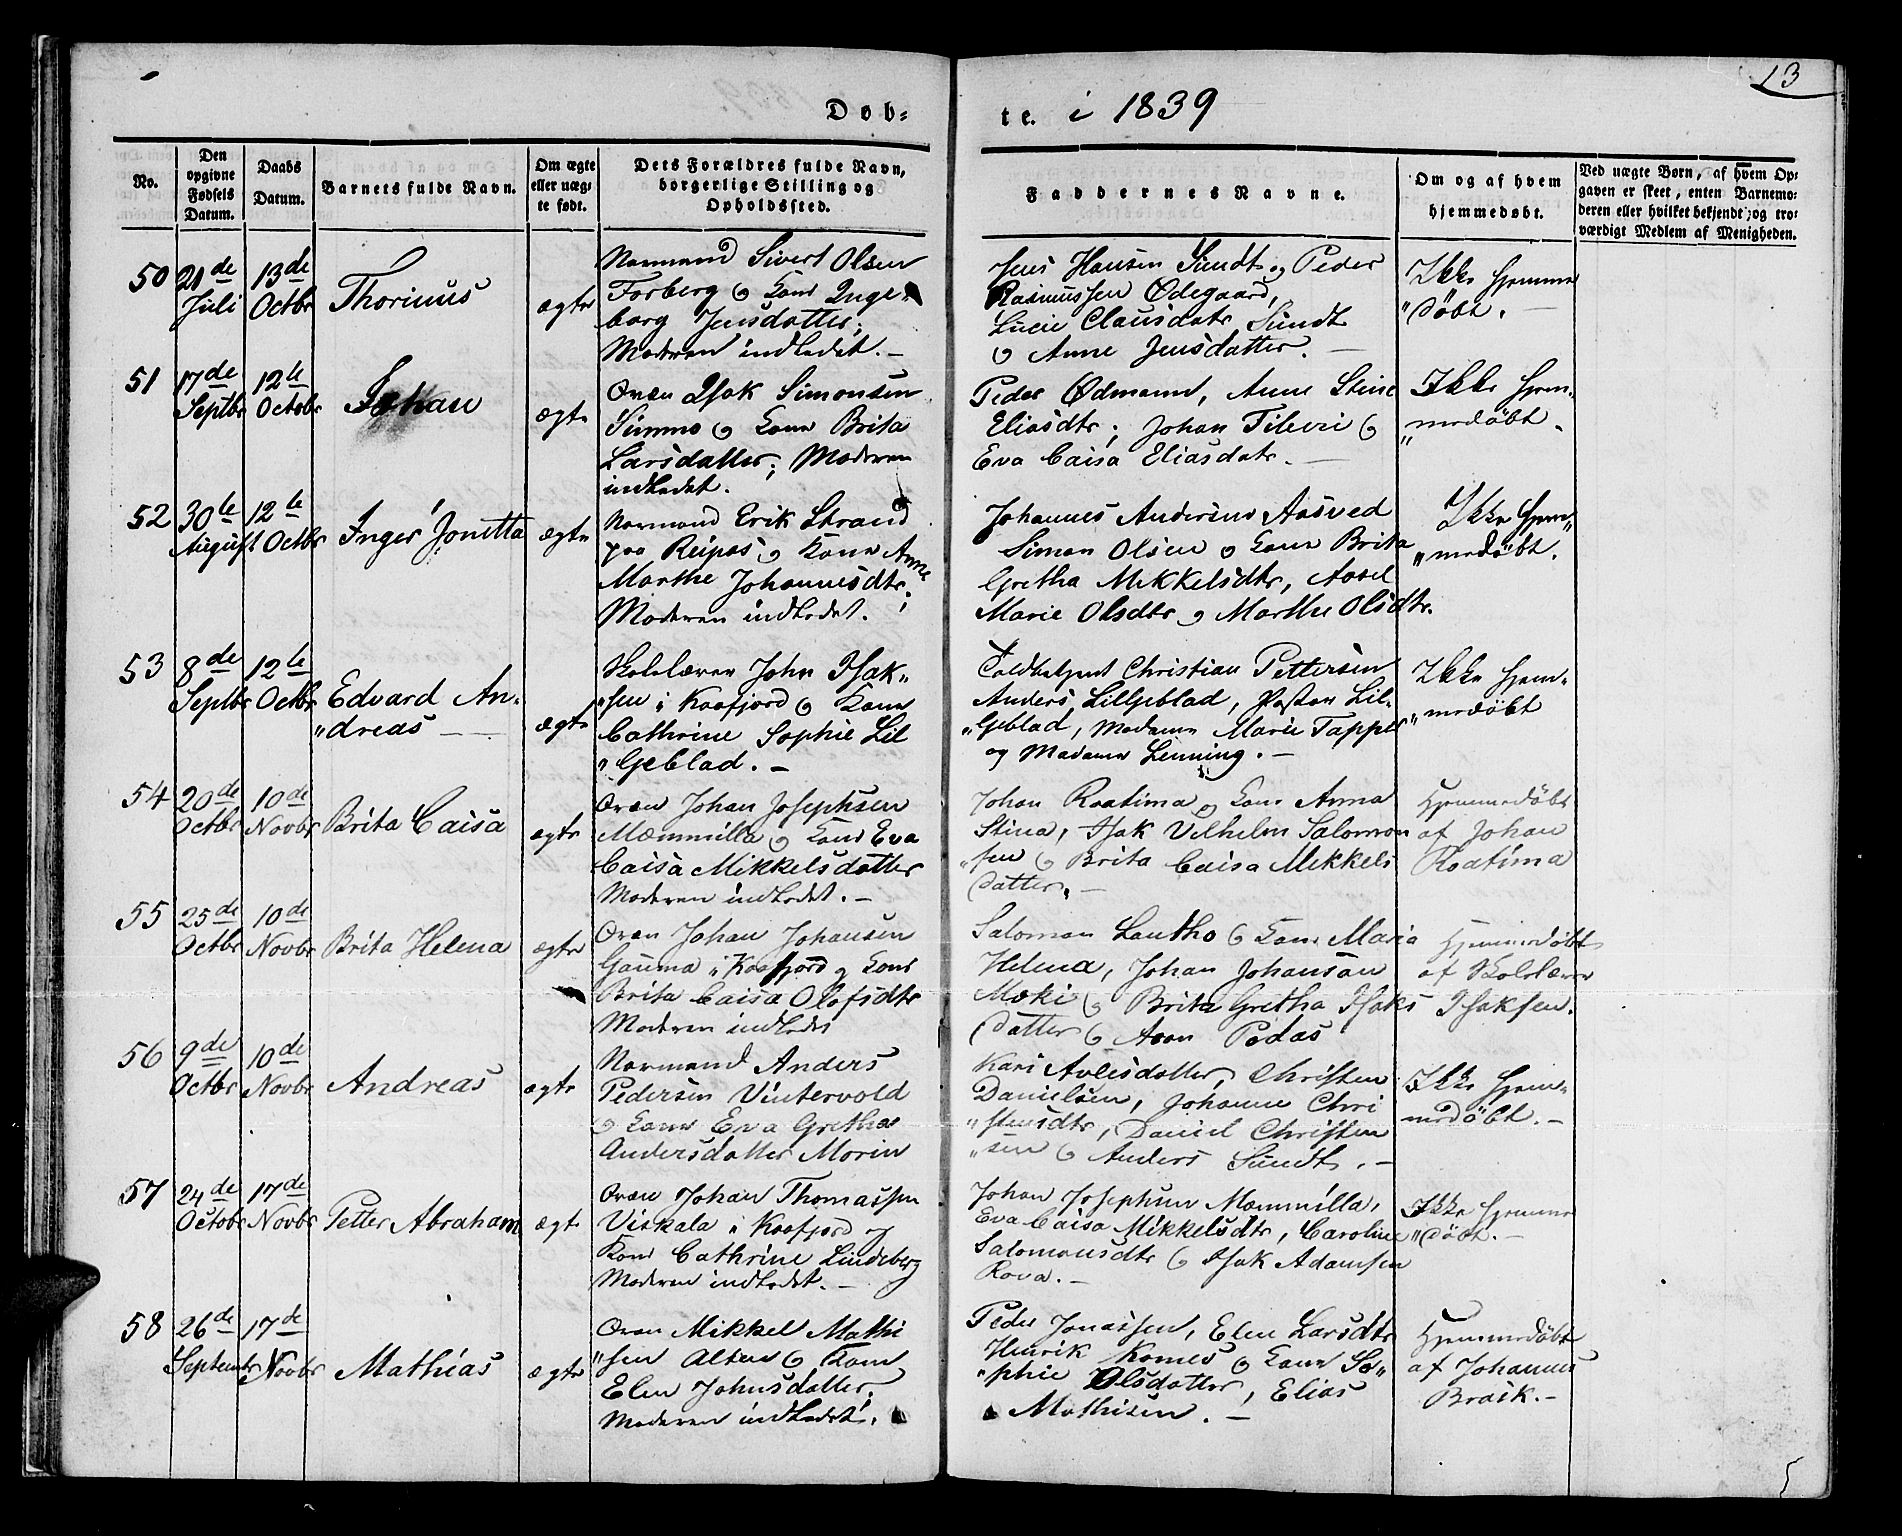 13
Døb-
te. i 1839
No.
Den
opgivne
Fødsels
Datum.
Daabs
Datum.
Barnets fulde Navn.
Om ægte
eller uæg-
te født.
Dets Forældres fulde Navn,
borgerlige Stilling og
Opholdssted.
Faddernes Navne.
Om og af hvem
hjemmedøbt.
Ved uægte Børn, af hvem Op-
gaven er skeet, enten Barnemo-
deren eller hvilket bekjendt og tro-
værdigt Medlem af Menigheden.
50
21de
Juli
13de
Octbr
Thorinus
ægte
Normand Sivert Olsen
Forberg og Kone Inge-
borg Jensdatter;
Moderen indledet. —
Jens Hansen Sundt og Peder
Rasmussen Ødegaard,
Lucie Clausdatr Sundt
og Anne Jensdatter. —
Ikke hjemme
"døbt. —
51
17de
Septbr
12te
Octobr
Johan
ægte
Qvæn Isak Simonsen
Simmo og Kone Brita
Larsdatter; Moderen
indledet.
Peder Ødmann, Anne Stine
Eliasdtr; Johan Fileviei og
Eva Caisa Eliasdatr. —
Ikke hjem-
"medøbt.
52
30te
August
12te
Octbr
Inger Jonetta
ægte
Normand Erik Strand
paa Reipas og Kone Anne
Marthe Johannesdtr;
Moderen indledet.
Johannes Andersens Aasved
Simon Olsen og Kone Brita
Gretha Mikkelsdtr, Axel
Marie Olsdtr og Marthe Olsdtr.
Ikke hjem"
"medøbt.
53
8de
Septbr
12te
Octbr
Edvard An-
"dreas —
ægte
Skolelærer John Isak"
"sen i Kaafjord og Kone
Cathrine Sophie Lil
"Geblad. —
Toldbetjent Christian Pettersen
Anders Lilgeblad, Lil-
"Geblad, Madame Marie Tapper
og Madame Lenning. —
Ikke hjem-
"medøbt
54
20de
Octbr
10de
Novbr
Brita Caisa
ægte
Qvæn Johan Josephsen
Mæmmilla og Kone Eva
Caisa Mikkelsdatter
Moderen indledet. —
Johan Raatima og Kone Anna
Stina, Isak Vilhelm Salomon
"sen og Brita Caisa Mikkels
datter. —
Hjemmedøbt
af Johan
Raatima
55
25de
Octbr
10de
Novbr
Brita Helena
ægte
Qvæn Johan Johansen
Gauma i Kaafjord og Kone
Brita Caisa Olofsdtr
Moderen indledet
Salomon Lantho og Kone Maria
Helena, Johan Johansøn
Mæki og Brita Gretha Isaks
datter og Aron Podas
Hjemmedøbt
af Skolelærer
Isaksen.
56
9de
Octbr
10de
Novbr
Andreas
ægte
Normand Anders
Pedersen Vintervold
og Kone Eva Gretha
Andersdatter Morin
Kari Avlesdatter, Christen
Danielsen, Johanne Chri
"stensdtr, Daniel Christen
"sen og Anders Sundt. —
Ikke hjem-
medøbt. —
57
24de
Octobr
17de
Novbr
Petter Abraham
ægte
Qvæn Johan Thomassen
Viskala i Kaafjord og
Kone Cathrine Lindeberg
Moderen indledet. —
Johan Josephsen Mæmmilla,
Eva Caisa Mikkelsdtr, Caroline
Salomonsdtr og Isak Adamsen
Rova. —
Ikke hjemme
"døbt. —
58
26de
Septembr
17de
Novbr
Mathias
ægte
Qvæn Mikkel Mathi
"sen Alten og Kone
Elen Johnsdatter;
Moderen indledet.
Peder Jonassen, Elen Larsdtr
Henrik Komes og Kone So"
"phie Olsdatter, Elias
Mathisen. —
Hjemmedøbt
af Johannes
Brask. —